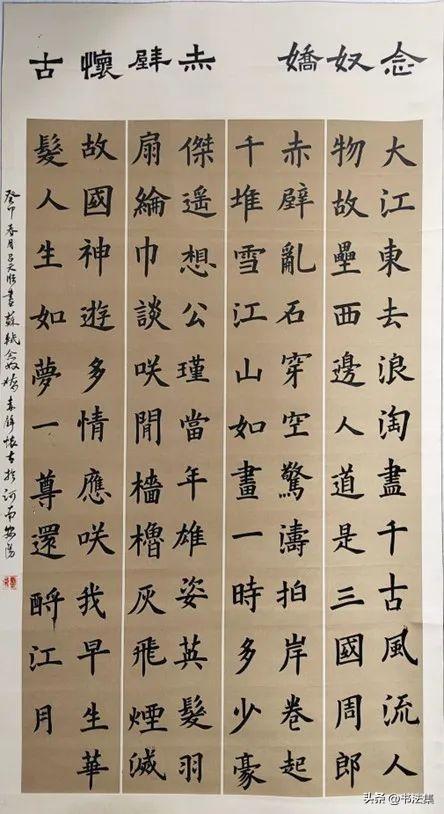 念奴嬌 赤壁懷古
大江東去浪淘盡千古風流人
物故壘西邊人道是三國周郎
赤壁亂石穿空驚濤拍岸卷起
千堆雪江山如畫一時多少豪
傑遥想公瑾當年雄姿英髮羽
扇綸巾談咲閒檣櫓灰飛煙滅
故國神遊多情應咲我早生華
髮人生如夢一尊還酹江月
癸卯春月書蘇軾念奴嬌赤壁懷古於河南安陽
头条 @书法集